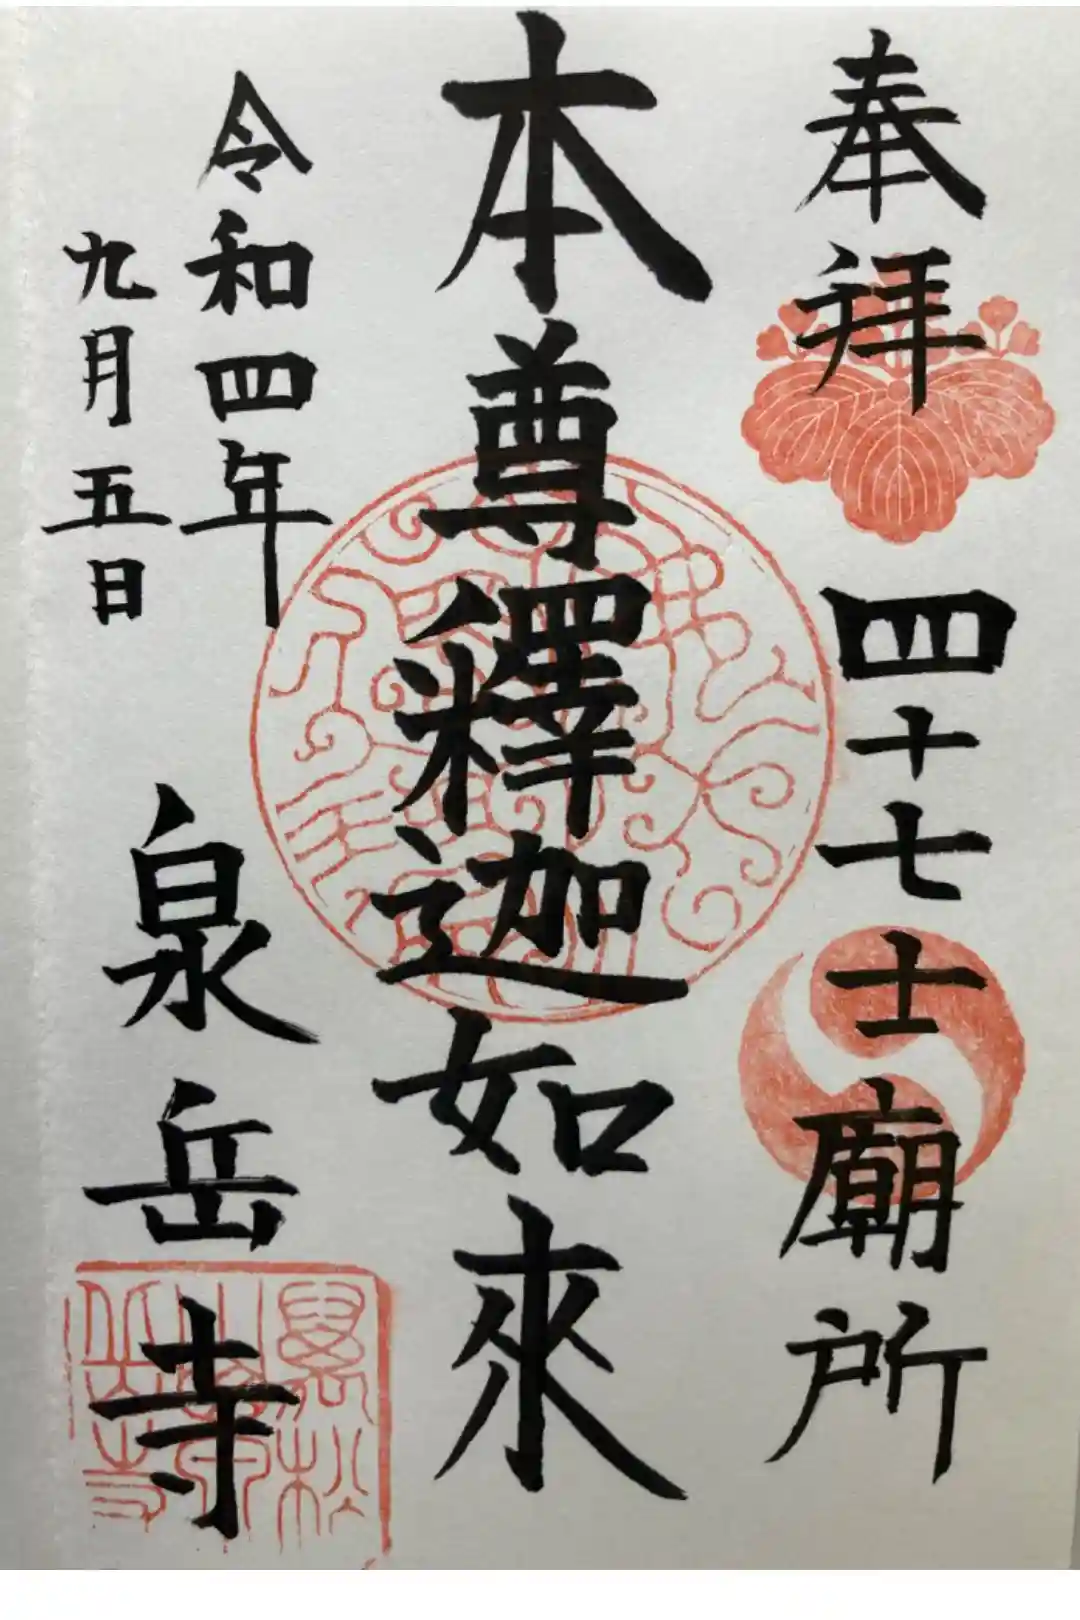 奉拜
四十七士廟所
本尊釋迦如來
令和四年
九月五日
泉岳寺